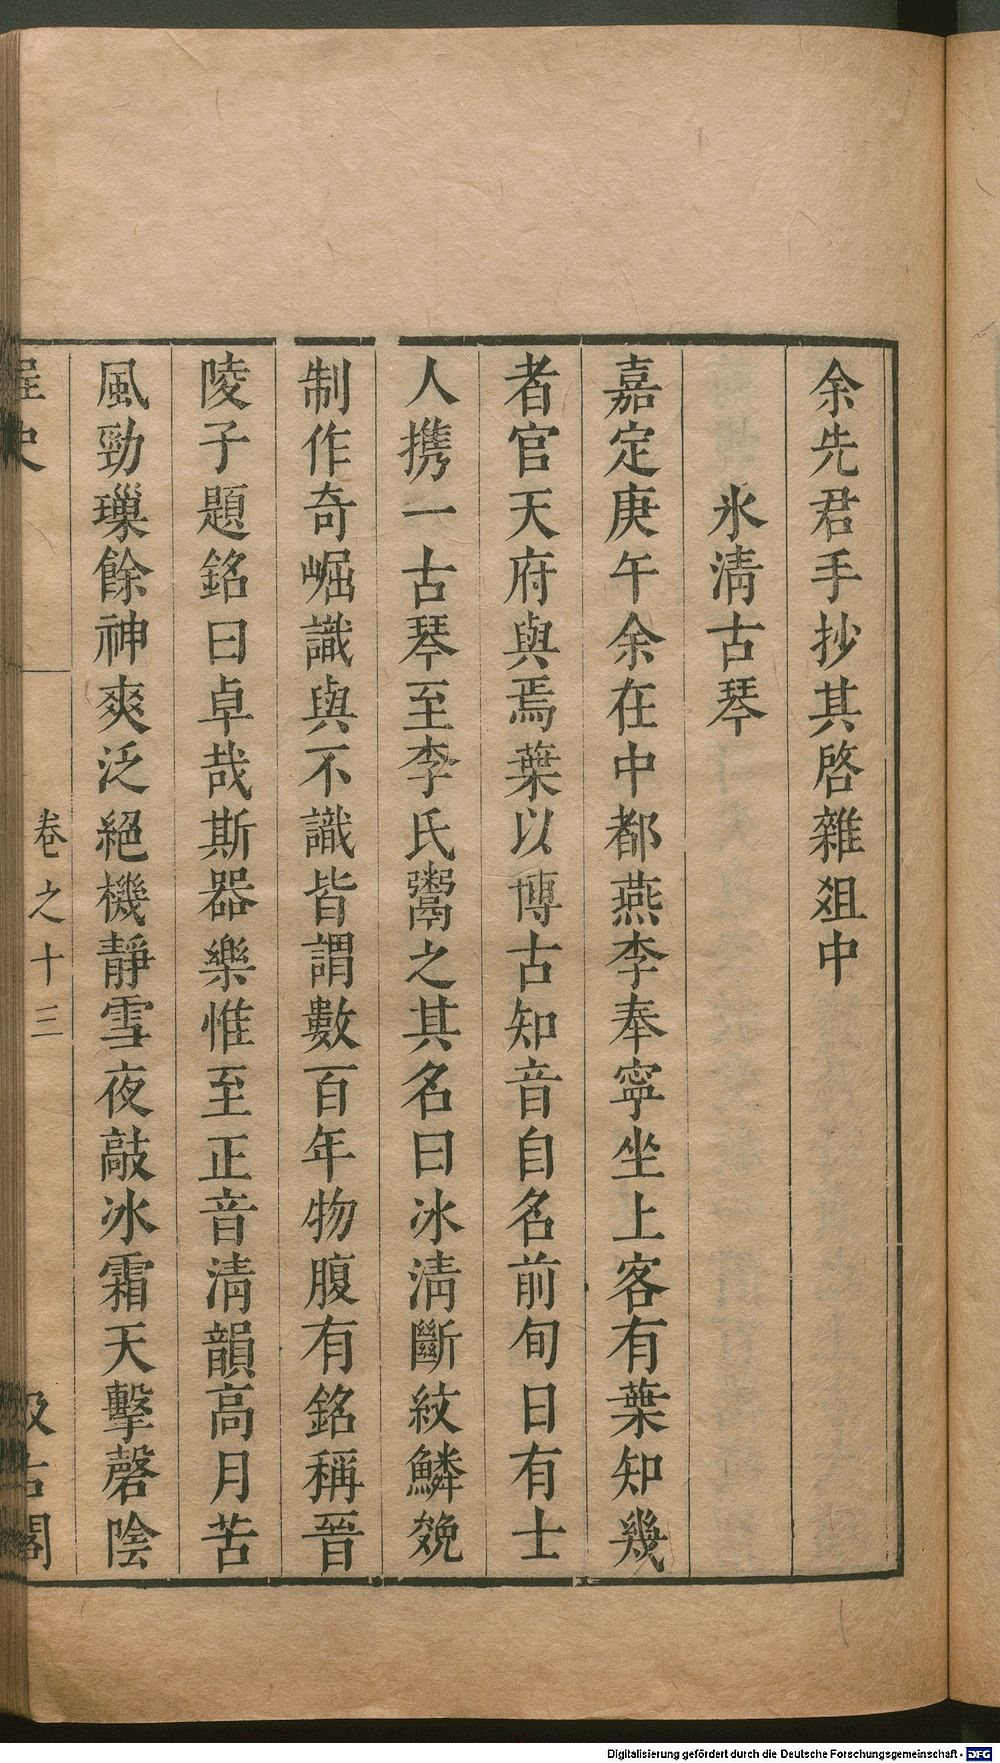 余先君手抄其啓雜爼中
氷清古琴
嘉定庚午余在中都燕李奉寧坐上客有葉知幾
者官天府與焉葉以博古知音自名前旬日有士
人携一古琴至李氏鬻之其名曰冰清斷紋鱗皴
制作奇崛識與不識皆謂數百年物腹有銘稱晉
陵子題銘曰卓哉斯器樂惟至正音清韻高月苦
風勁璅餘神爽泛絕機靜雪夜敲冰霜天擊磬陰
桯史
卷之十三
汲古閣
Digitalisierung gefördert durch die Deutsche Forschungsgemeinschaft - DFG